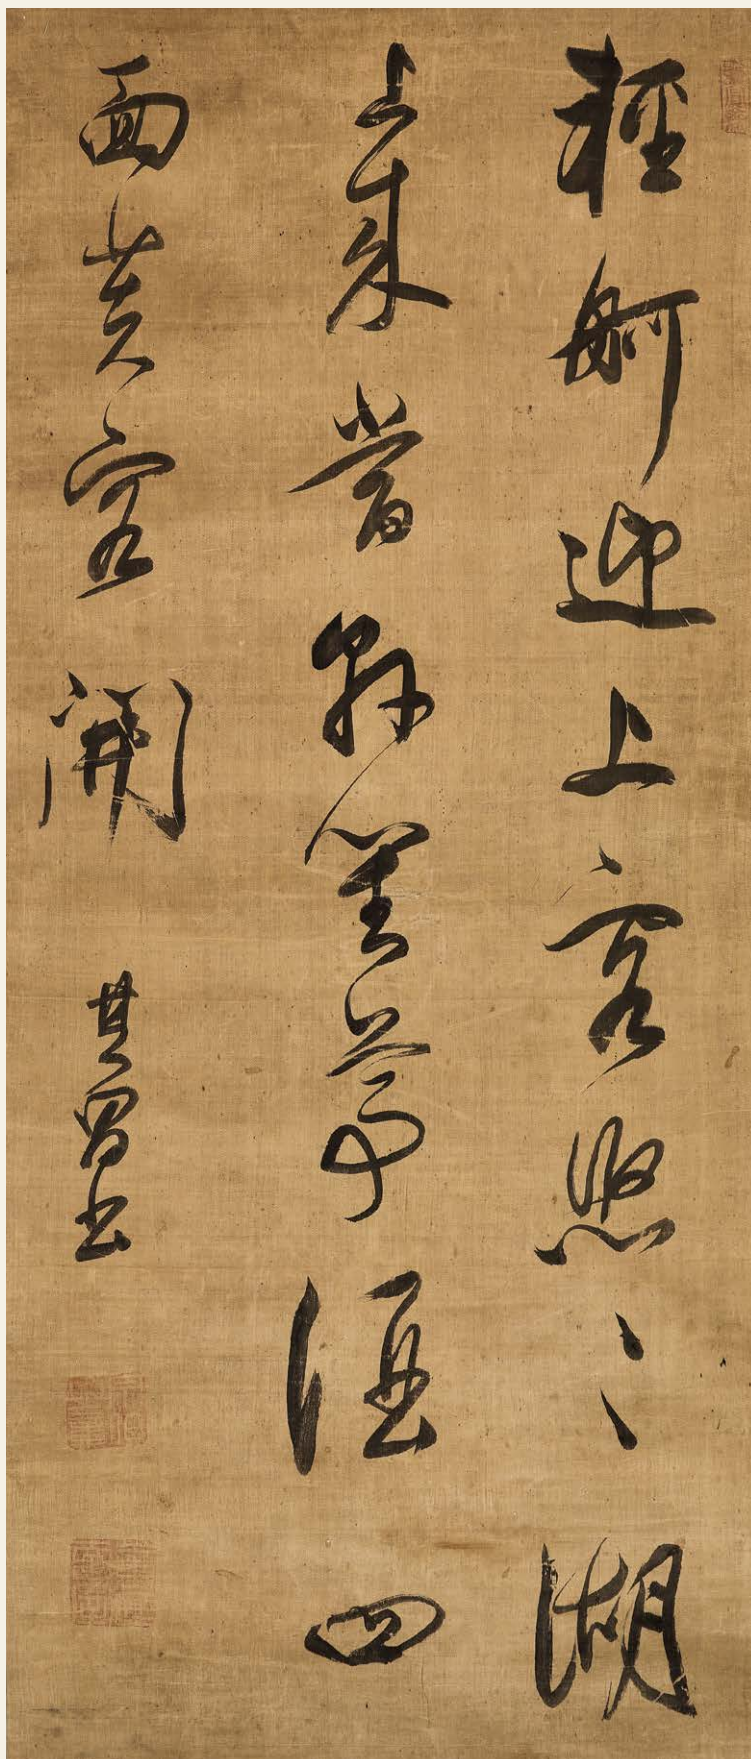 輕舸迎上客悠々湖
上來當軒對尊酒四
面芙容開 其昌書